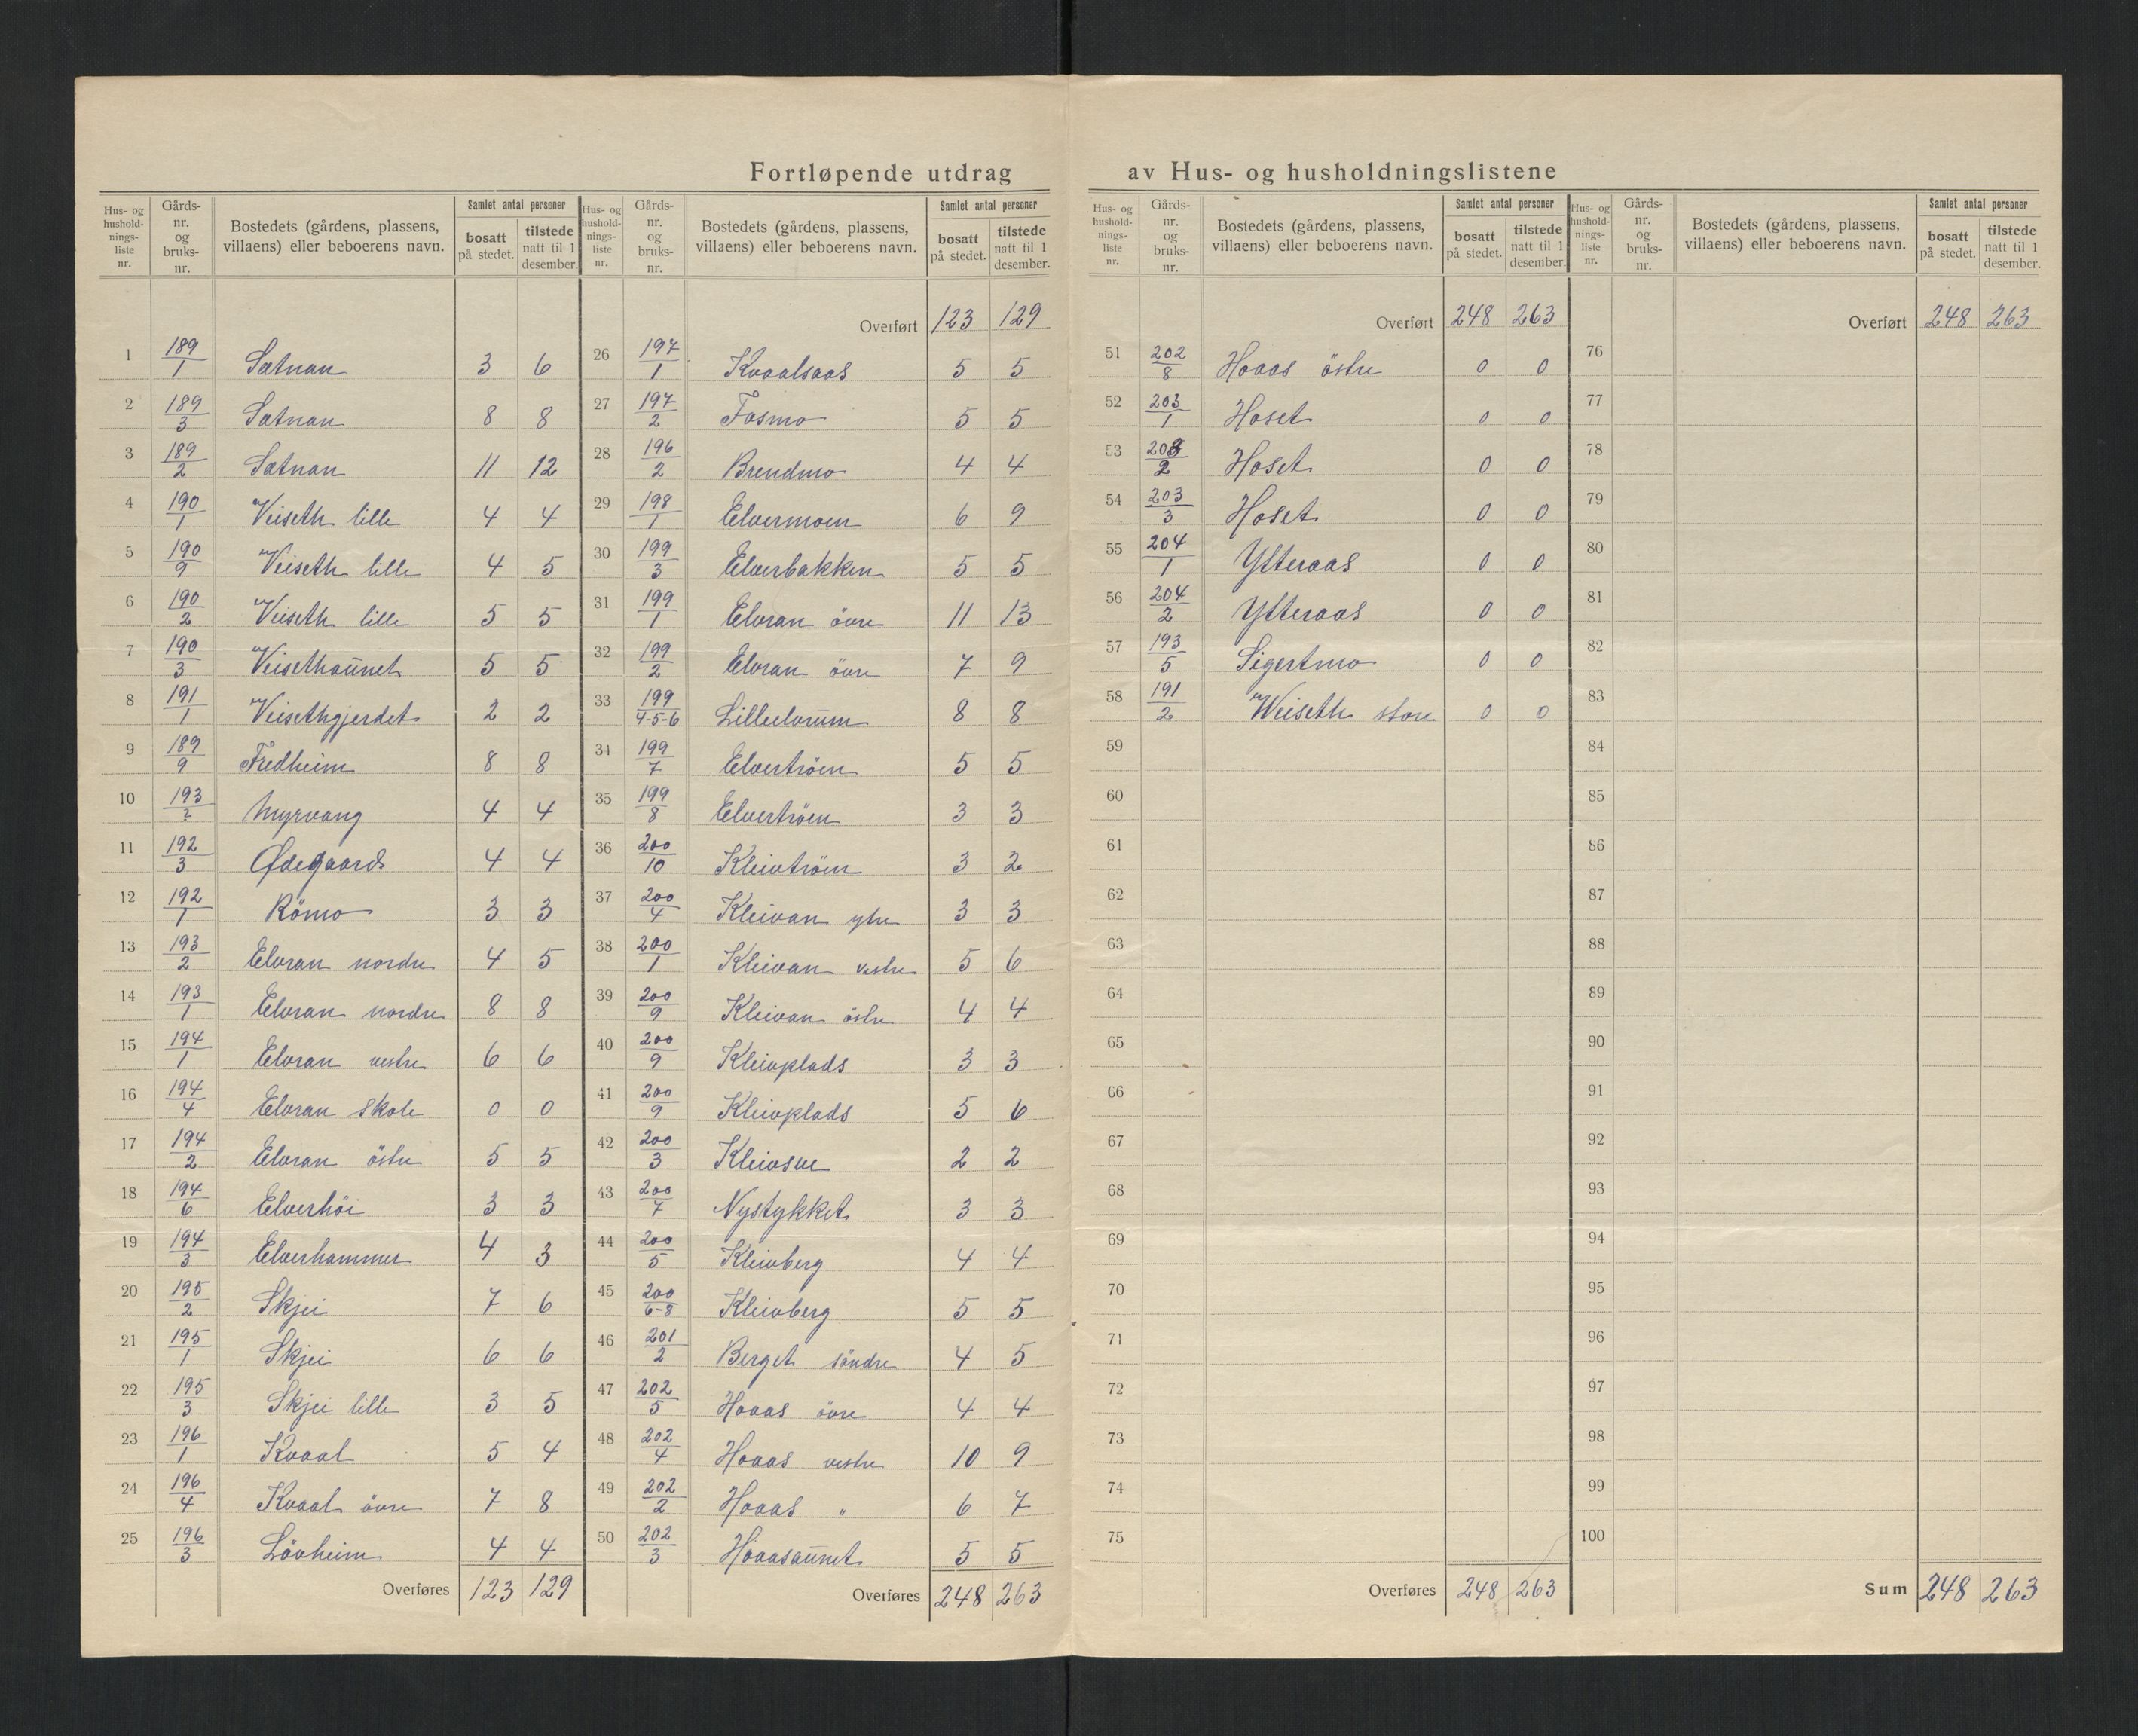 Fortløpende utdrag av Hus- og husholdningslistene
Hus- og husholdningsliste nr. | Gårds-nr. og bruks-nr. | Bostedets (gårdens, plassens, villaens) eller beboerens navn. | Samlet antal personer: bosatt på stedet. | tilstede natt til 1 desember.
1 189/1 Sætnan 3 6
2 189/3 Sætnan 8 8
3 189/2 Sætnan 11 12
4 190/1 Veiseth lille 4 4
5 190/9 Veiseth lille 4 5
6 190/2 Veiseth lille 5 5
7 190/3 Veisethaunet 5 5
8 191/1 Veisethgjerdet 2 2
9 189/9 Fredheim 8 8
10 193/? Myrvang 4 4
11 192/3 Ødegaard 4 4
12 192/1 Römo 3 3
13 193/2 Elvran nordre 4 5
14 193/1 Elvran nordre 8 8
15 194/1 Elvran vestre 6 6
16 194/4 Elvran skole 0 0
17 194/2 Elvran östre 5 5
18 194/6 Elverhöi 3 3
19 194/3 Elverhammer 4 3
20 195/2 Skjei 7 6
21 195/1 Skjei 6 6
22 195/3 Skjei lille 3 5
23 196/1 Kvaal 5 4
24 196/4 Kvaal övre 7 8
25 196/3 Lövheim 4 4
Overføres 123 129
Hus- og husholdningsliste nr. | Gårds-nr. og bruks-nr. | Bostedets (gårdens, plassens, villaens) eller beboerens navn. | Samlet antal personer: bosatt på stedet. | tilstede natt til 1 desember.
Overført 123 129
26 197/1 Kvaalsaas 5 5
27 197/2 Fosmo 5 5
28 196/2 Brendmo 4 4
29 198/1 Elvermoen 6 9
30 199/3 Elverbakken 5 5
31 199/1 Elvran övre 11 13
32 199/2 Elvran övre 7 9
33 199/4-5-6 Lilleelvrum 8 8
34 199/7 Elvertrøen 5 5
35 199/8 Elvertröen 3 3
36 200/10 Kleivtröen 3 2
37 200/4 Kleivan ytre 3 3
38 200/1 Kleivan vestre 5 6
39 200/9 Kleivan östre 4 4
40 200/9 Kleivplads 3 3
41 200/9 Kleivplads 5 6
42 200/3 Kleivsve 2 2
43 200/7 Nystykket 3 3
44 200/5 Kleivberg 4 4
45 200/6-8 Kleivberg 5 5
46 201/2 Berget söndre 4 5
47 202/5 Hoaas övre 4 4
48 202/4 Hoaas vestre 10 9
49 202/2 Hoaas " 6 7
50 202/3 Hoaasaunet 5 5
Overføres 248 263
Hus- og husholdningsliste nr. | Gårds-nr. og bruks-nr. | Bostedets (gårdens, plassens, villaens) eller beboerens navn. | Samlet antal personer: bosatt på stedet. | tilstede natt til 1 desember.
Overført 248 263
51 202/8 Hoaas östre 0 0
52 203/1 Hoset 0 0
53 203/2 Hoset 0 0
54 203/3 Hoset 0 0
55 204/1 Ytteraas 0 0
56 204/2 Ytteraas 0 0
57 193/5 Sigertmo 0 0
58 191/2 Weiseth store 0 0
59
60
61
62
63
64
65
66
67
68
69
70
71
72
73
74
75
Overføres 248 263
Hus- og husholdningsliste nr. | Gårds-nr. og bruks-nr. | Bostedets (gårdens, plassens, villaens) eller beboerens navn. | Samlet antal personer: bosatt på stedet. | tilstede natt til 1 desember.
Overført 248 263
76
77
78
79
80
81
82
83
84
85
86
87
88
89
90
91
92
93
94
95
96
97
98
99
100
Sum 248 263